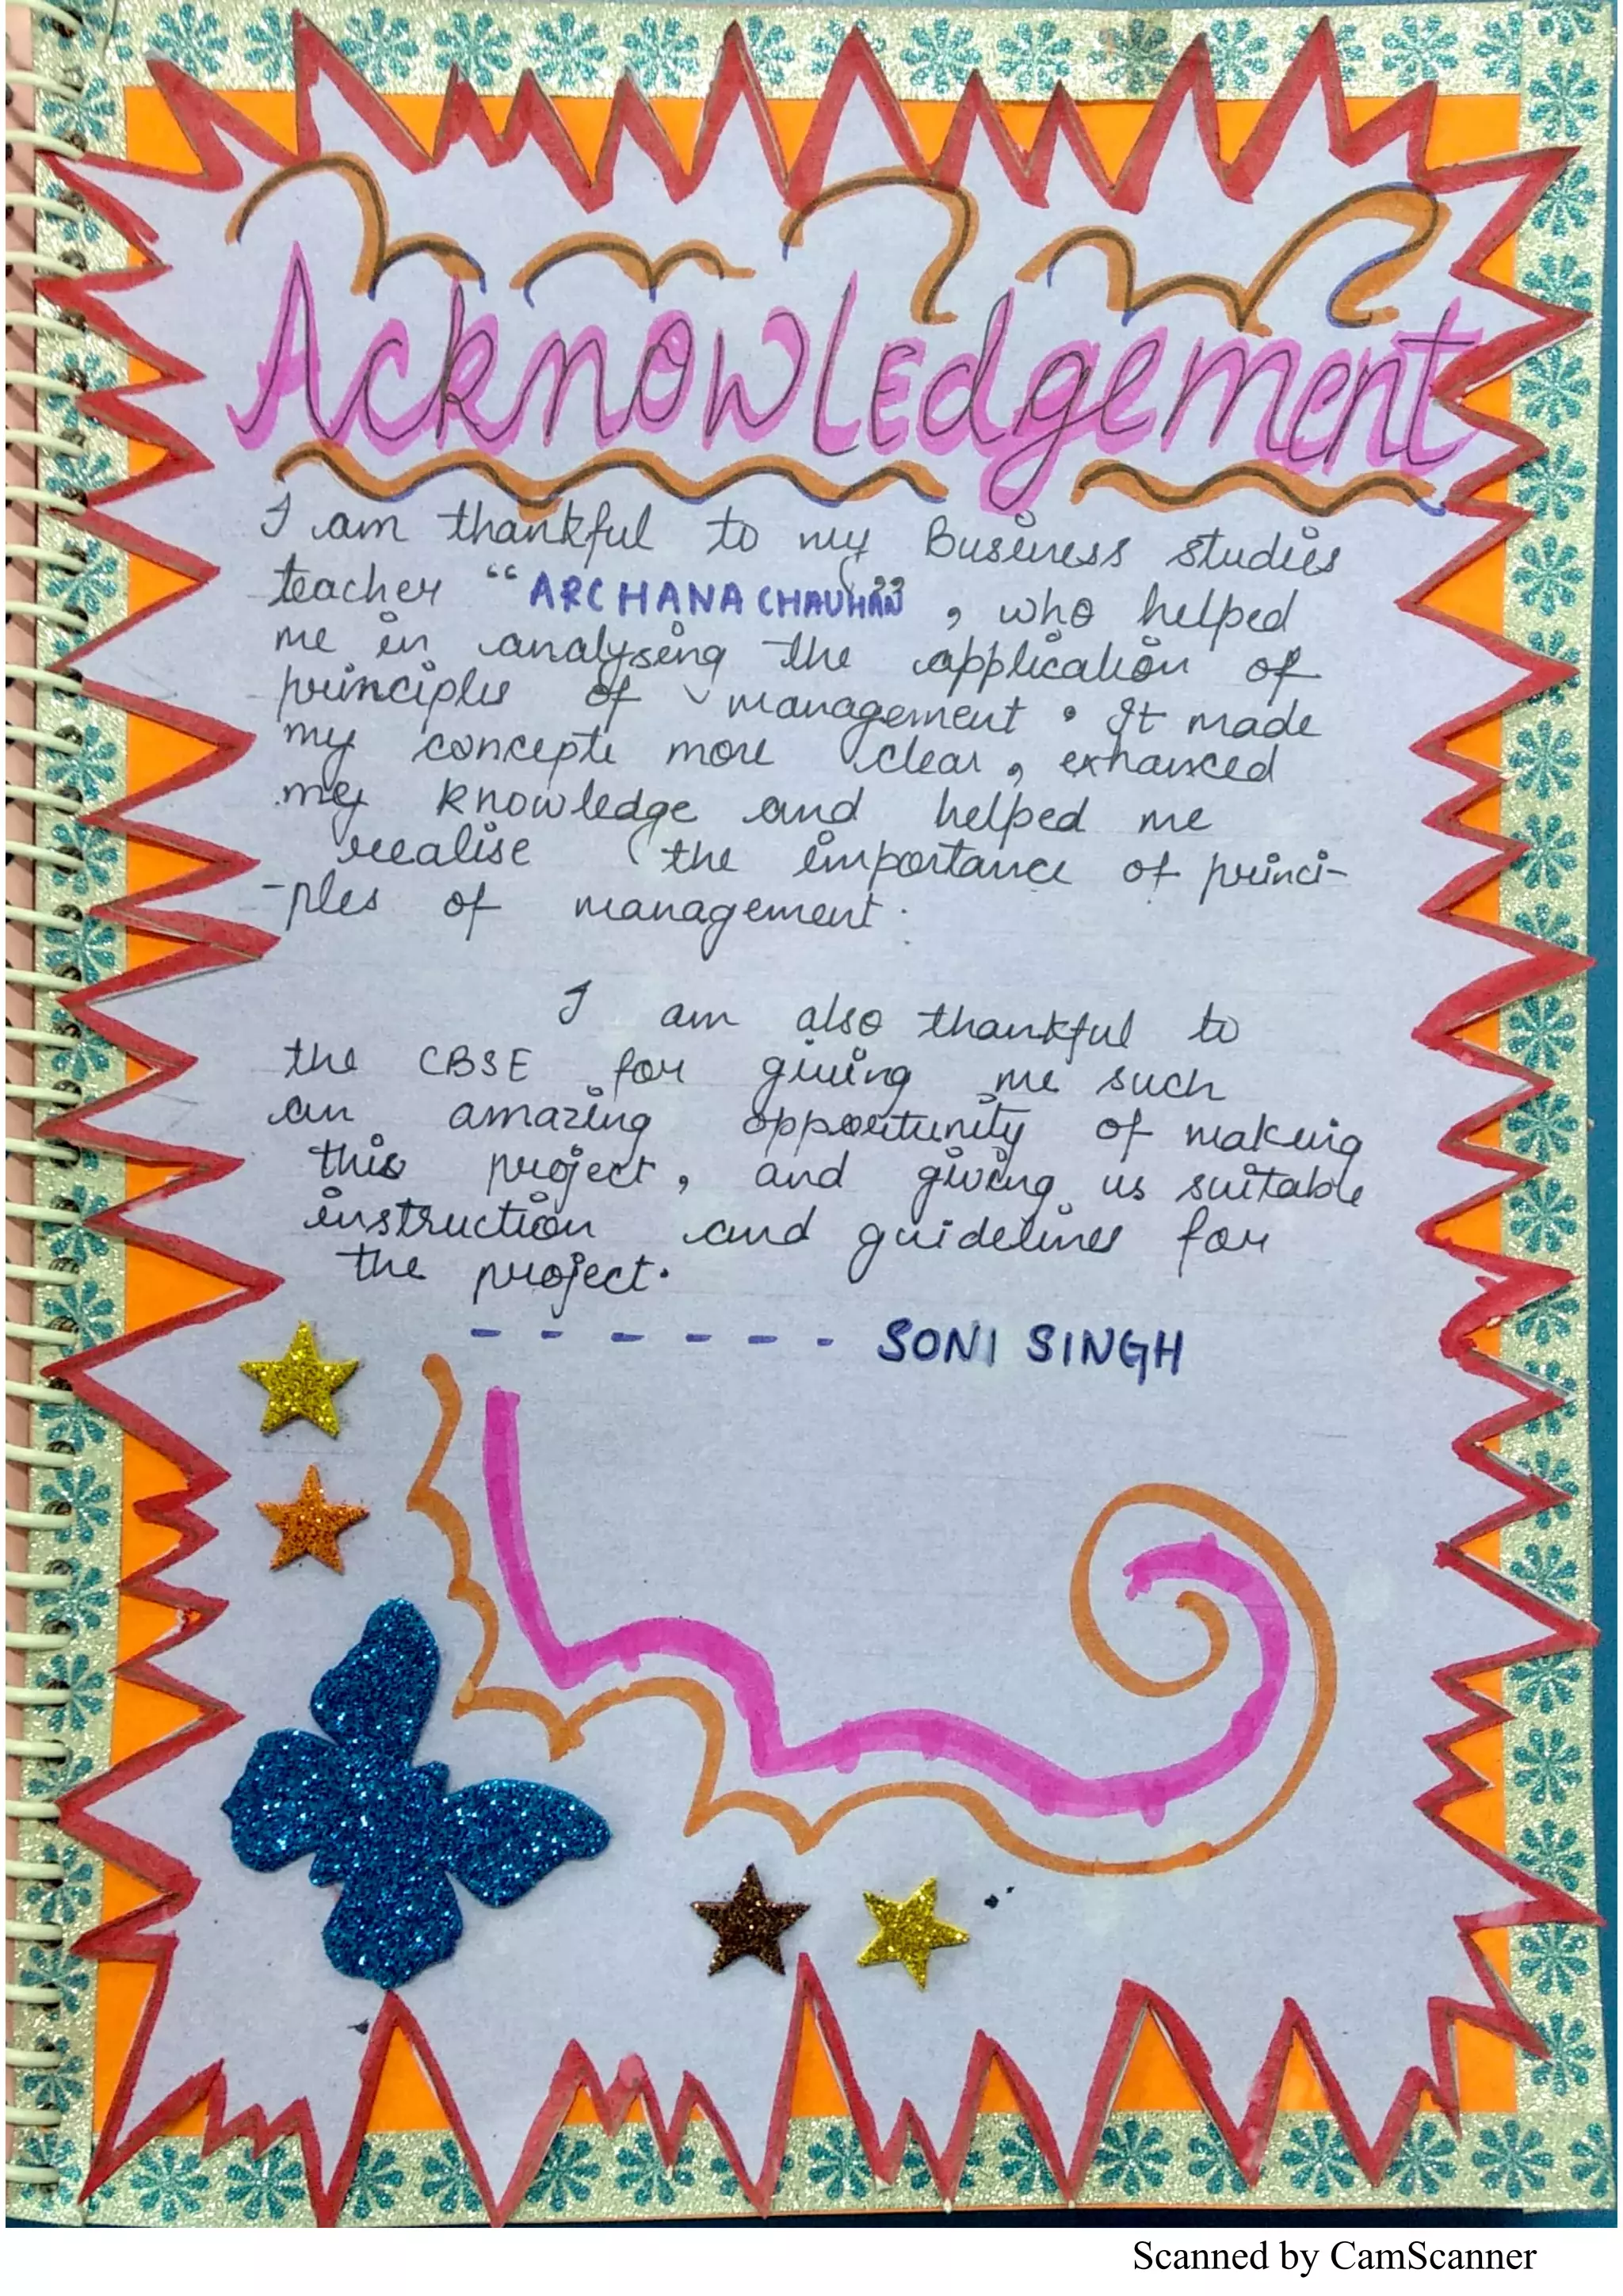 Acknowledgement
I am thankful to my Business studies
teacher “ARCHANA CHAUHAN”, who helped
me in analysing the application of
principles of management. It made
my concepts more clear, enhanced
my knowledge and helped me
realise the importance of princi-
-ples of management.
I am also thankful to
the CBSE for giving me such
an amazing opportunity of making
this project, and giving us suitable
instruction and guidelines for
the project.
- - - - - - SONI SINGH
Scanned by CamScanner